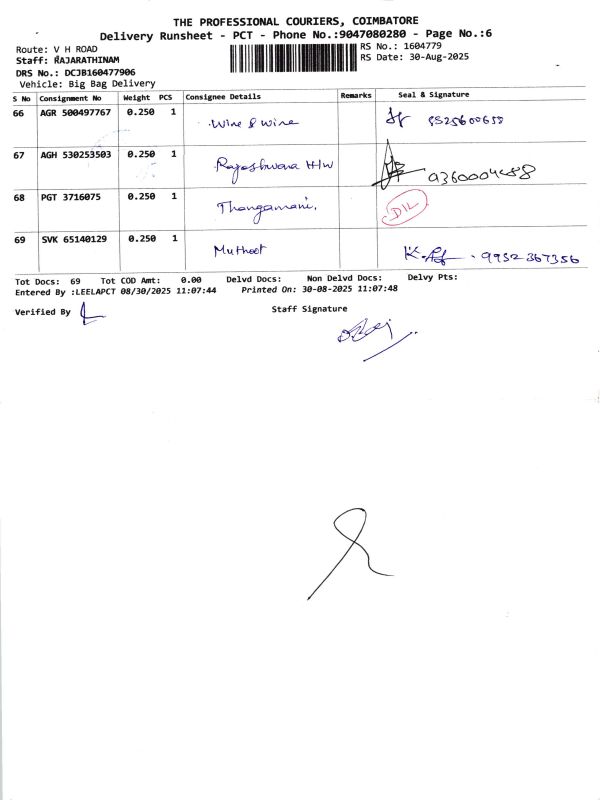 THE PROFESSIONAL COURIERS, COIMBATORE
Delivery Runsheet - PCT - Phone No.:9047080280 - Page No.:6
Route: V H ROAD
RS No.: 1604779
Staff: RAJARATHINAM
RS Date: 30-Aug-2025
DRS No.: DCJB160477906
Vehicle: Big Bag Delivery
S No Consignment No Weight PCS Consignee Details Remarks Seal & Signature
66 AGR 500497767 0.250 1 Wine & Wine
67 AGH 530253503 0.250 1 Rajeshwara H/W
68 PGT 3716075 0.250 1 Thangamani. D/L
69 SVK 65140129 0.250 1 Muthoot 9932367356
Tot Docs: 69 Tot COD Amt: 0.00 Delvd Docs: Non Delvd Docs: Delvy Pts:
Entered By :LEELAPCT 08/30/2025 11:07:44 Printed On: 30-08-2025 11:07:48
Verified By
Staff Signature